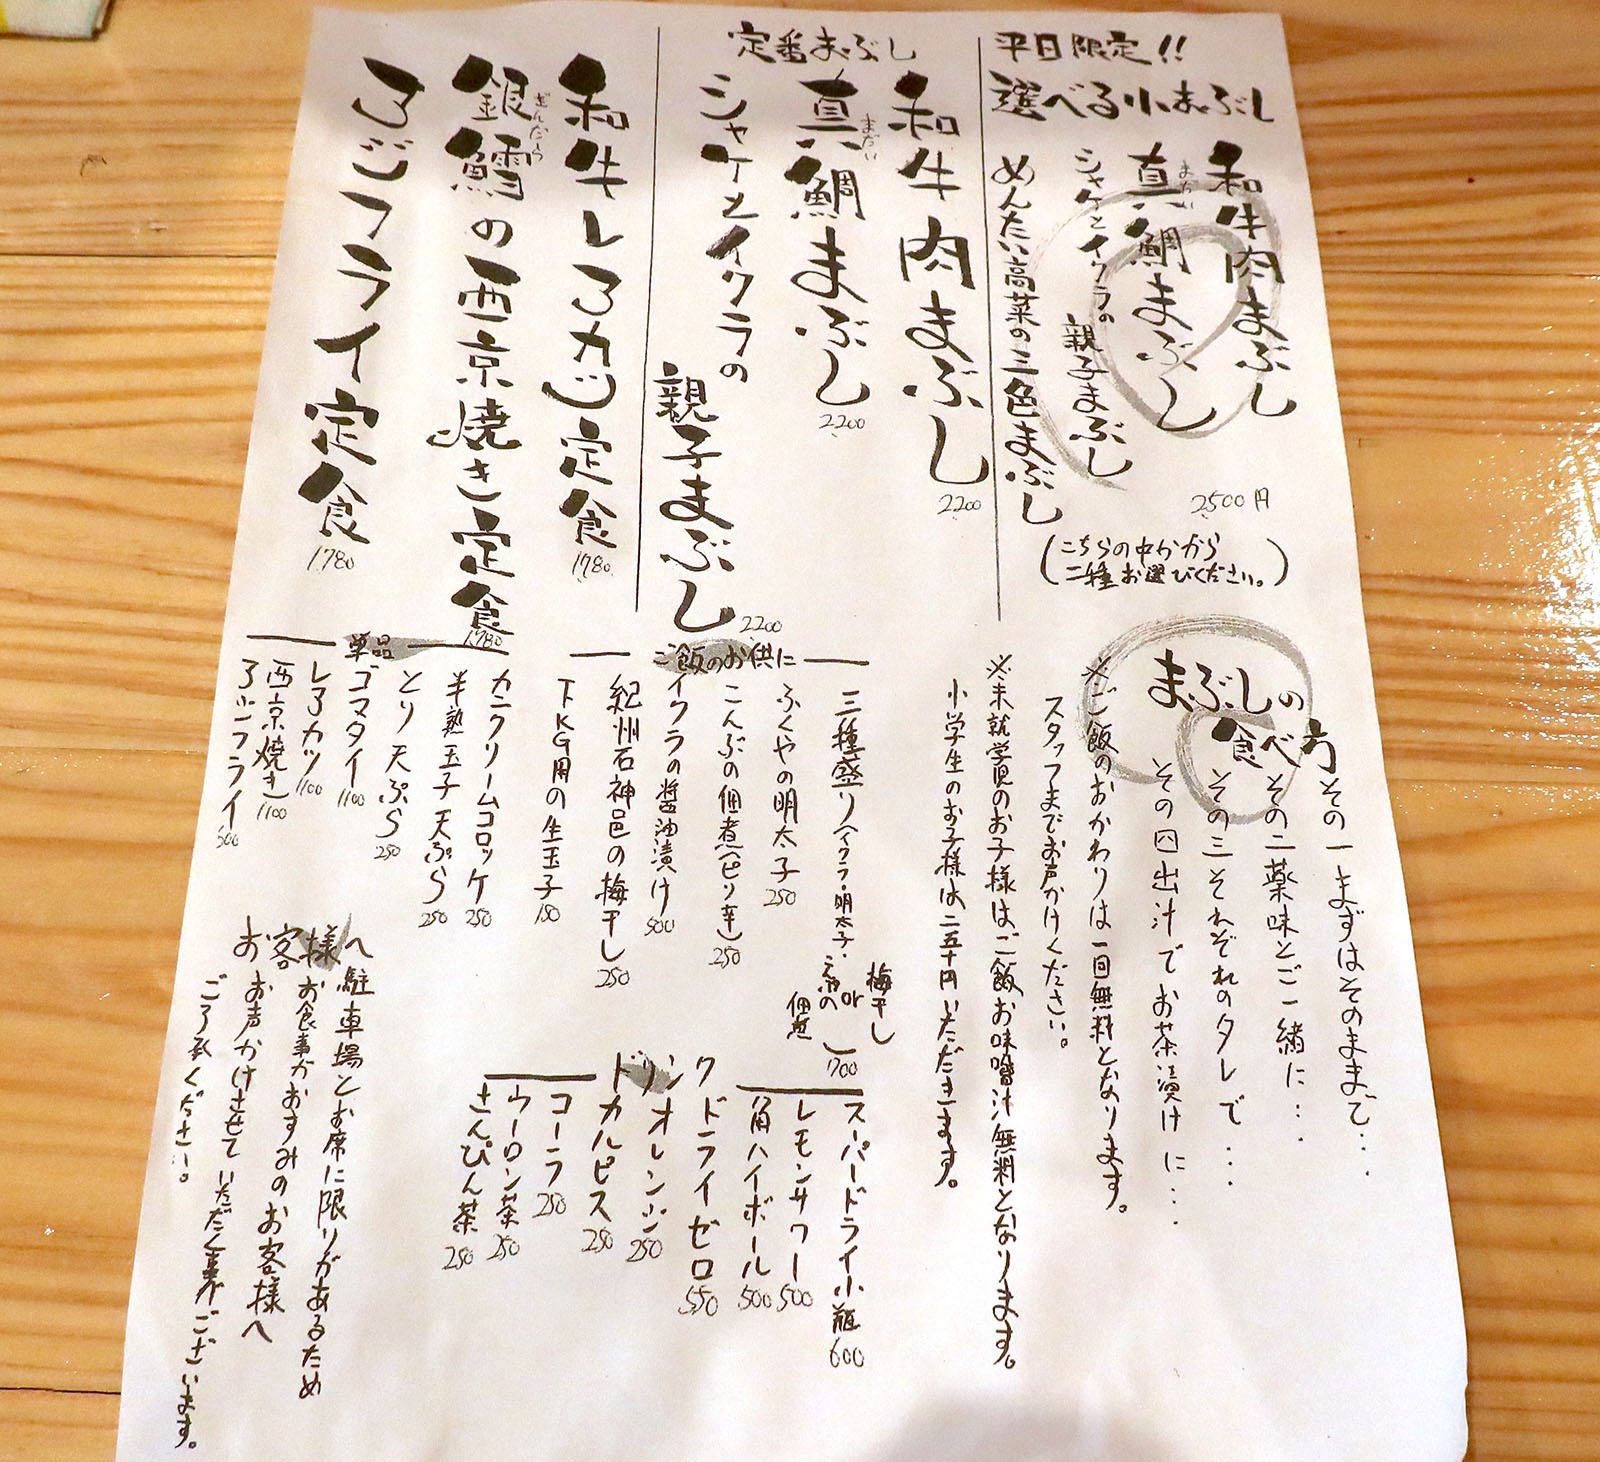 平日限定!!
選べる小まぶし
和牛肉まぶし
真鯛まぶし
まだい
シャケとイクラの親子まぶし
めんたい高菜の三色まぶし
2500円
(こちらの中から
二種お選びください。)
定番まぶし
和牛肉まぶし
2200
真鯛まぶし
まだい
2200
シャケとイクラの
親子まぶし
2200
和牛レアカツ定食
1780
銀鱈の西京焼き定食
ぎんだら
1780
アジフライ定食
1780
まぶしの
食べ方
その一まずはそのままで…
その二薬味とご一緒に…
その三それぞれのタレで…
その四出汁でお茶漬けに…
※ご飯のおかわりは一回無料となります。
スタッフまでお声かけください。
※未就学児のお子様はご飯お味噌汁無料となります。
小学生のお子様は二五十円いただきます。
ご飯のお供に
三種盛り(イクラ・明太子・梅干しor昆布の佃煮)
700
ふくやの明太子
250
こんぶの佃煮(ピリ辛)
250
イクラの醤油漬け
500
紀州石神邑の梅干し
250
TKG用の生玉子
150
単品
カニクリームコロッケ
250
半熟玉子天ぷら
250
とり天ぷら
250
ゴマタイ
1100
レアカツ
1100
西京焼き
1100
アジフライ
500
ドリンク
スーパードライ小瓶
600
レモンサワー
500
角ハイボール
500
ドライゼロ
550
オレンジ
250
カルピス
250
コーラ
250
ウーロン茶
250
さんぴん茶
250
お客様へ
駐車場とお席に限りがあるため
お食事がおすみのお客様へ
お声かけさせていただく事がございます。
ご了承ください。